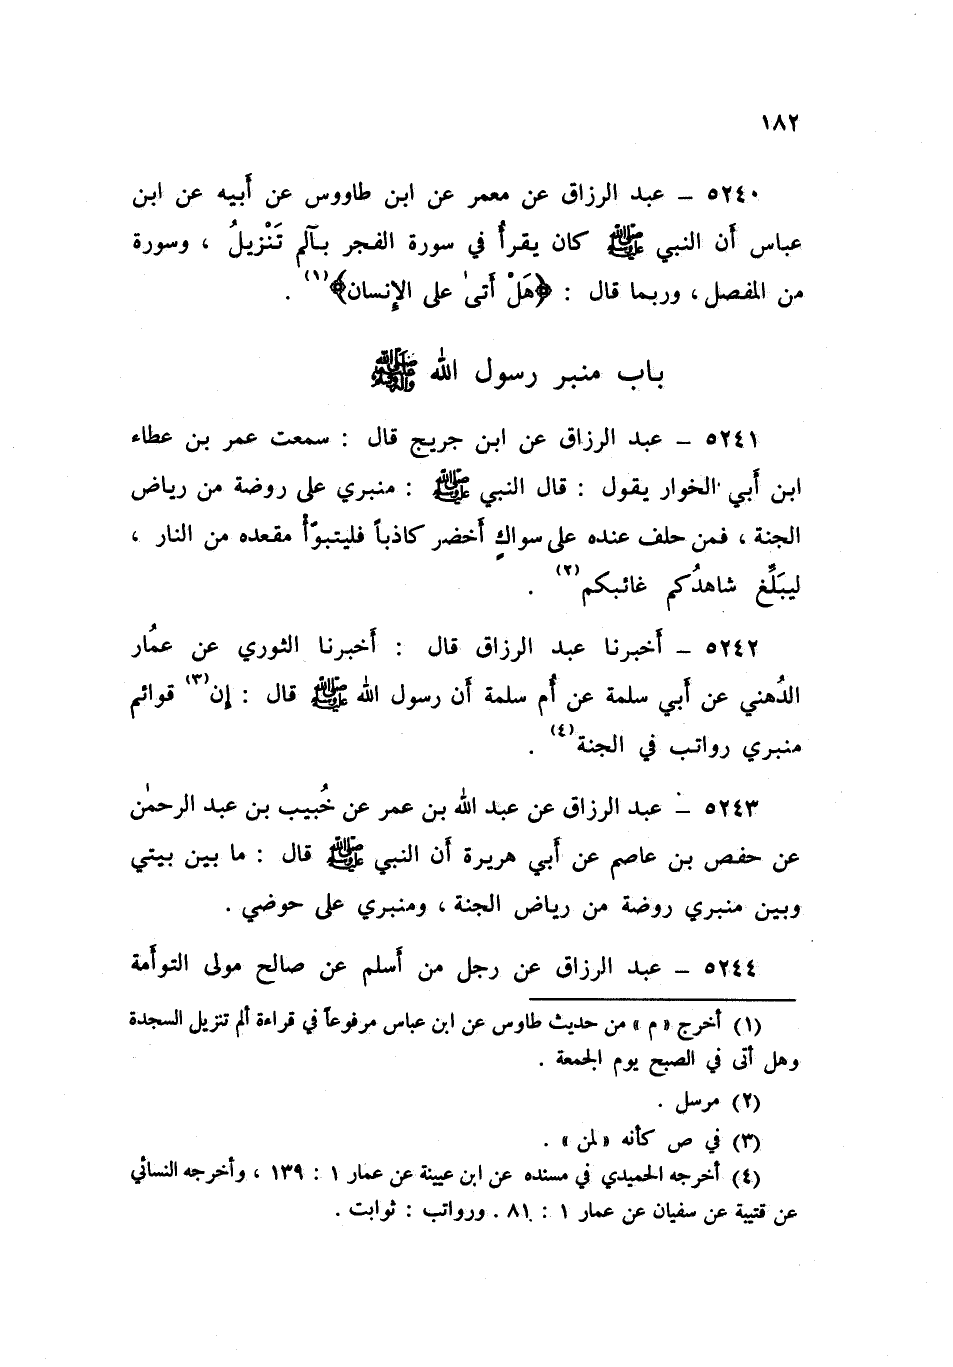 ١٨٢
٥٢٤٠ – عبد الرزاق عن معمر عن ابن طاووس عن أَبيه عن ابن
عباس أَن النبي ﷺ كان يقرأُ في سورة الفجر بآلم تَنْزيلُ ، وسورة
من المفصل ، وربما قال : ﴿هَلْ أَتىٰ على الإِنسان﴾(١) .
باب منبر رسول الله ﷺ
٥٢٤١ – عبد الرزاق عن ابن جريج قال : سمعت عمر بن عطاء
ابن أَبي الخوار يقول : قال النبي ﷺ : منبري على روضة من رياض
الجنة ، فمن حلف عنده على سواكٍ أَخضر كاذباً فليتبوّأْ مقعده من النار ،
ليبَلِّغ شاهدُكم غائبكم(٢) .
٥٢٤٢ – أَخبرنا عبد الرزاق قال : أَخبرنا الثوري عن عمُار
الدُهني عن أَبي سلمة عن أُم سلمة أَن رسول الله ﷺ قال : إِن(٣) قوائم
منبري رواتب في الجنة(٤) .
٥٢٤٣ – عبد الرزاق عن عبد الله بن عمر عن خُبيب بن عبد الرحمٰن
عن حفص بن عاصم عن أَبي هريرة أَن النبي ﷺ قال : ما بين بيتي
وبين منبري روضة من رياض الجنة ، ومنبري على حوضي .
٥٢٤٤ – عبد الرزاق عن رجل من أَسلم عن صالح مولى التوأَمة
(١) أخرج «م» من حديث طاوس عن ابن عباس مرفوعاً في قراءة ألم تنزيل السجدة
وهل أتى في الصبح يوم الجمعة .
(٢) مرسل .
(٣) في ص كأنه «لمن» .
(٤) أخرجه الحميدي في مسنده عن ابن عيينة عن عمار ١ : ١٣٩ ، وأخرجه النسائي
عن قتيبة عن سفيان عن عمار ١ : ٨١ . ورواتب : ثوابت .